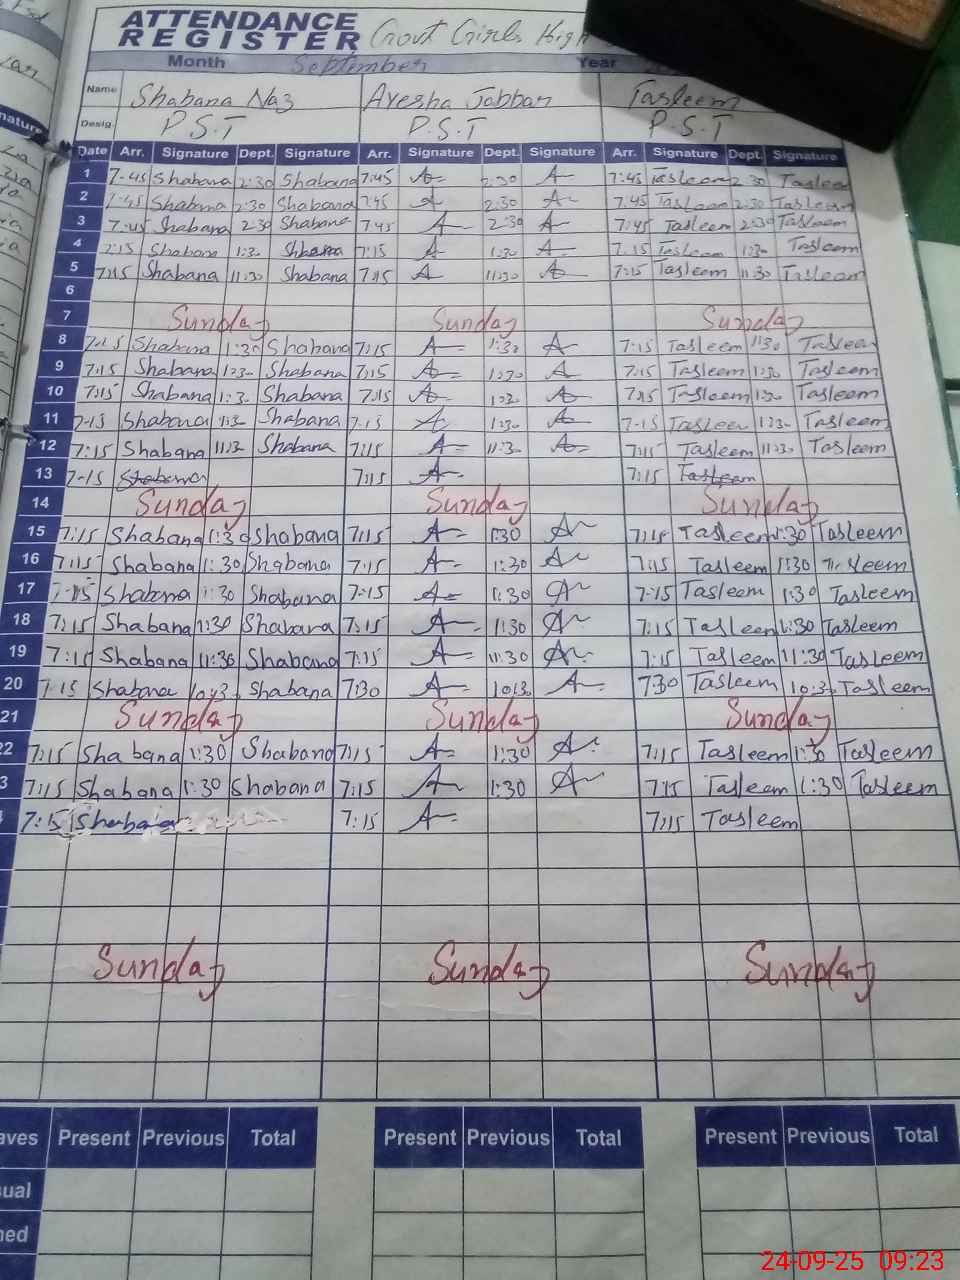 ATTENDANCE
REGISTER Govt Girls High
Month September Year
Name Shabana Naz Ayesha Jabbar Tasleem
Desig. P.S.T P.S.T P.S.T
Date Arr. Signature Dept. Signature Arr. Signature Dept. Signature Arr. Signature Dept. Signature
1 7-45 Shabana 2:30 Shabana 7:45 A 2:30 A 7:45 Tasleem 2:30 Tasleem
2 7-45 Shabana 2:30 Shabana 7:45 A 2:30 A 7:45 Tasleem 2:30 Tasleem
3 7-45 Shabana 2:30 Shabana 7:45 A 2:30 A 7:45 Tasleem 2:30 Tasleem
4 Shabana 1:30 Shabana 7:15 A 1:30 A 7:15 Tasleem 1:30 Tasleem
5 7:15 Shabana 11:30 Shabana 7:15 A 11:30 A 7:15 Tasleem 11:30 Tasleem
6
7 Sunday Sunday Sunday
8 7:15 Shabana 1:30 Shabana 7:15 A 1:30 A 7:15 Tasleem 1:30 Tasleem
9 7:15 Shabana 1:30 Shabana 7:15 A 1:30 A 7:15 Tasleem 1:30 Tasleem
10 7:15 Shabana 1:30 Shabana 7:15 A 1:30 A 7:15 Tasleem 1:30 Tasleem
11 7-15 Shabana 1:30 Shabana 7:15 A 1:30 A 7-15 Tasleem 1:30 Tasleem
12 7:15 Shabana 11:30 Shabana 7:15 A 11:30 A 7:15 Tasleem 11:30 Tasleem
13 7-15 Shabana 7:15 A 7:15 Tasleem
14 Sunday Sunday Sunday
15 7:15 Shabana 1:30 Shabana 7:15 A 1:30 A 7:15 Tasleem 1:30 Tasleem
16 7:15 Shabana 1:30 Shabana 7:15 A 1:30 A 7:15 Tasleem 1:30 Tasleem
17 7-15 Shabana 1:30 Shabana 7:15 A 1:30 A 7:15 Tasleem 1:30 Tasleem
18 7:15 Shabana 1:30 Shabana 7:15 A 11:30 A 7:15 Tasleem 1:30 Tasleem
19 7:15 Shabana 11:30 Shabana 7:15 A 11:30 A 7:15 Tasleem 11:30 Tasleem
20 7:15 Shabana 10:30 Shabana 7:30 A 10:30 A 7:30 Tasleem 10:30 Tasleem
21 Sunday Sunday Sunday
22 7:15 Shabana 1:30 Shabana 7:15 A 1:30 A 7:15 Tasleem 1:30 Tasleem
3 7:15 Shabana 1:30 Shabana 7:15 A 1:30 A 7:15 Tasleem 1:30 Tasleem
7:15 Shabana 7:15 A 7:15 Tasleem
Sunday Sunday Sunday
aves Present Previous Total Present Previous Total Present Previous Total
ual
ned
24-09-25 09:23